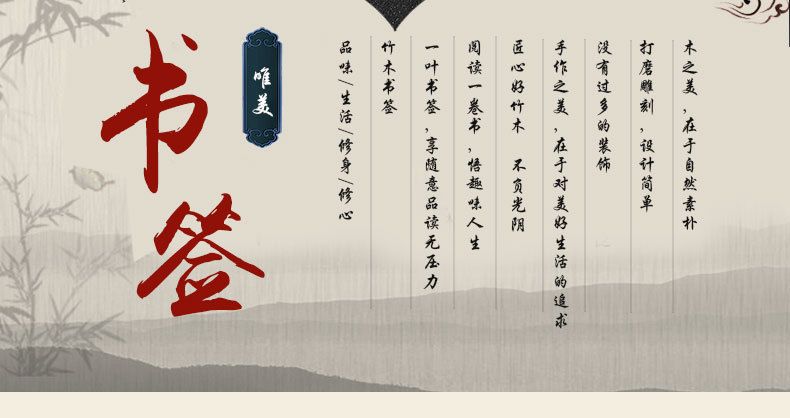 木之美，在于自然素朴
打磨雕刻，设计简单
没有过多的装饰
手作之美，在于对美好生活的追求
匠心好竹木 不负光阴
阅读一卷书，悟趣味人生
一叶书签，享随意品读无压力
竹木书签
品味/生活/修身/修心
唯美
书签